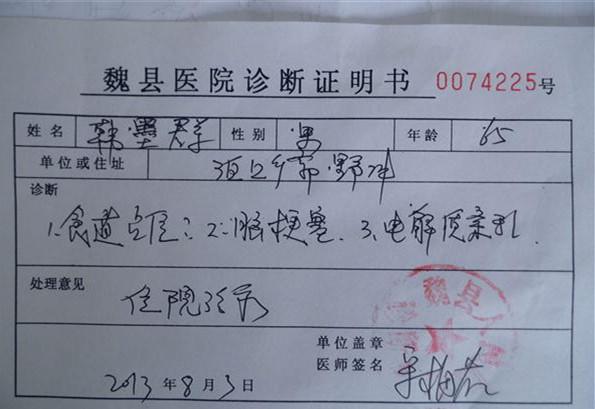 魏县医院诊断证明书 0074225号
姓名 韩墨群 性别 男 年龄 65
单位或住址
诊断
1.食道占位? 2.脑梗塞. 3.电解质紊乱.
处理意见
住院
单位盖章
医师签名
2013年8月3日
魏县